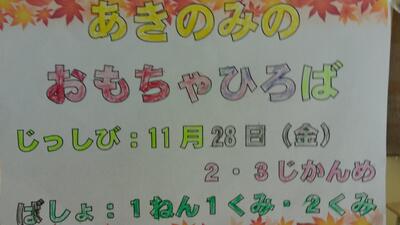 あきのみの
おもちゃひろば
じっしび：11月28日（金）
2・3じかんめ
ばしょ：1ねん1くみ・2くみ